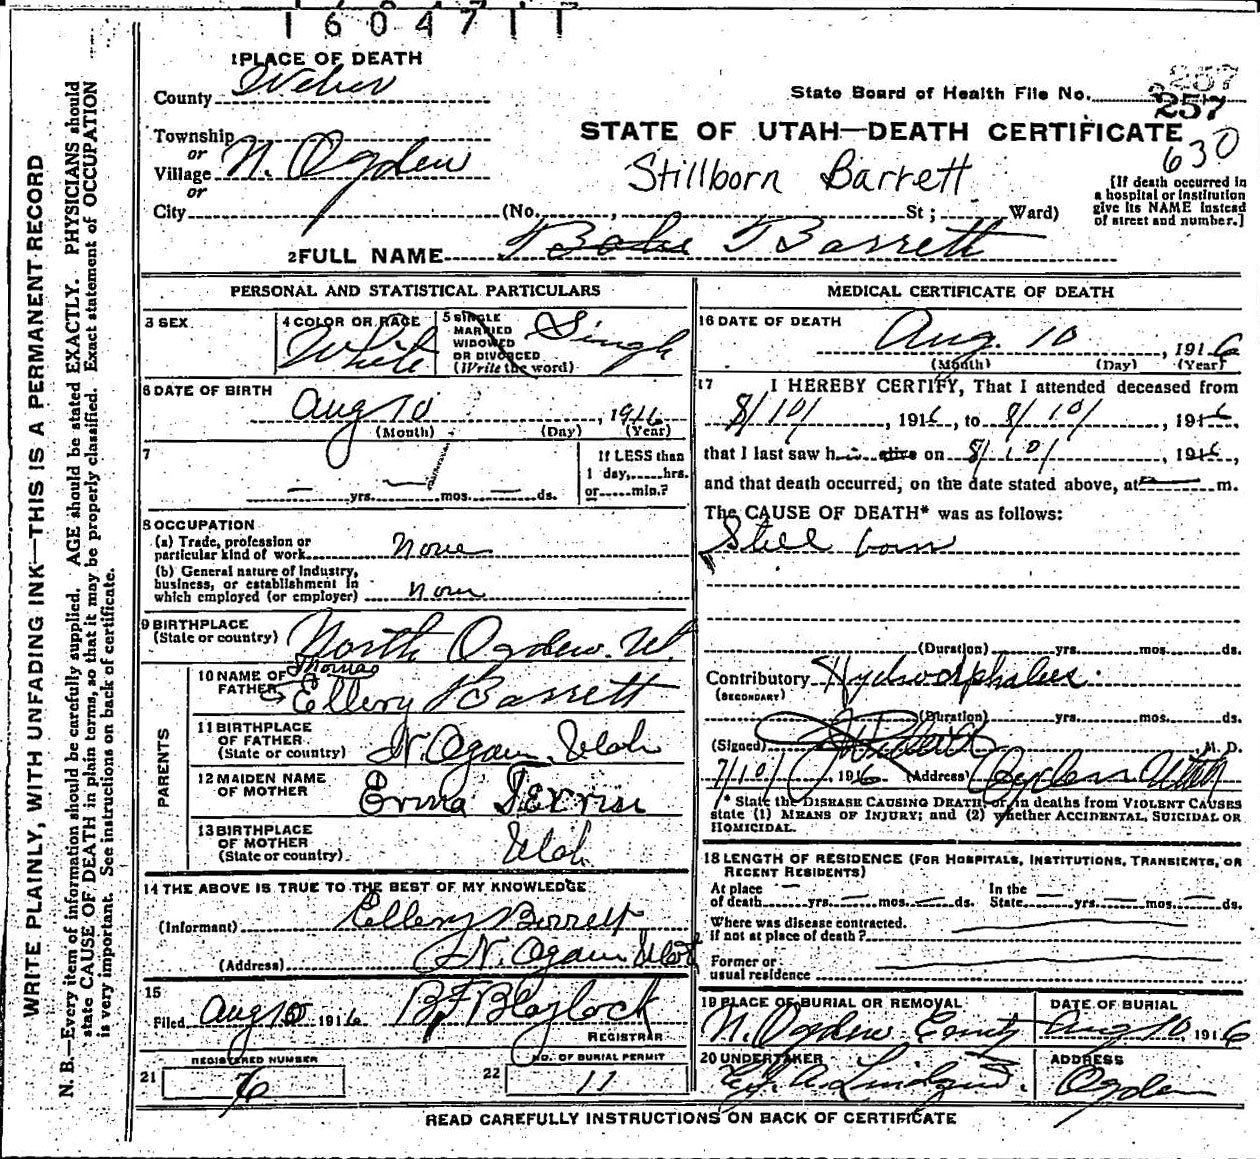 1604711
1 PLACE OF DEATH
County Weber
State Board of Health File No. 257
257
STATE OF UTAH—DEATH CERTIFICATE
630
Township
or
Village N. Ogden
or
Stillborn Barrett
[If death occurred in
a hospital or institution
give its NAME instead
of street and number.]
City (No. , St ; Ward)
2 FULL NAME Babe Barrett
PERSONAL AND STATISTICAL PARTICULARS
3 SEX
4 COLOR OR RACE White
5 SINGLE
MARRIED
WIDOWED
OR DIVORCED
(Write the word)
Single
6 DATE OF BIRTH
Aug 10, 1916
(Month) (Day) (Year)
7
— yrs. — mos. — ds.
If LESS than
1 day, hrs.
or min.?
8 OCCUPATION
(a) Trade, profession or
particular kind of work none
(b) General nature of Industry,
business, or establishment in
which employed (or employer) none
9 BIRTHPLACE
(State or country) North Ogden. Ut.
PARENTS
10 NAME OF
FATHER
Thomas
Ellery Barrett
11 BIRTHPLACE
OF FATHER
(State or country) N. Ogden Utah
12 MAIDEN NAME
OF MOTHER Erma
13 BIRTHPLACE
OF MOTHER
(State or country) Utah
14 THE ABOVE IS TRUE TO THE BEST OF MY KNOWLEDGE
(Informant) Ellery Barrett
(Address) N. Ogden Utah
15
Filed Aug 10 1916 B F Blaylock
REGISTRAR
REGISTERED NUMBER
21 76
NO. OF BURIAL PERMIT
22 11
MEDICAL CERTIFICATE OF DEATH
16 DATE OF DEATH
Aug. 10, 1916
(Month) (Day) (Year)
17 I HEREBY CERTIFY, That I attended deceased from
8/10/, 1916, to 8/10/ 1916,
that I last saw h alive on 8/10/, 1916,
and that death occurred, on the date stated above, at — m.
The CAUSE OF DEATH* was as follows:
Still born
(Duration) yrs. mos. ds.
Contributory Hydrocephalus.
(SECONDARY)
(Duration) yrs. mos. ds.
(Signed) M. D.
7/10/, 1916 (Address) Ogden Utah
* State the DISEASE CAUSING DEATH, or, in deaths from VIOLENT CAUSES
state (1) MEANS OF INJURY; and (2) whether ACCIDENTAL, SUICIDAL OR
HOMICIDAL.
18 LENGTH OF RESIDENCE (FOR HOSPITALS, INSTITUTIONS, TRANSIENTS, OR
RECENT RESIDENTS)
At place
of death — yrs. — mos. — ds.
In the
State — yrs. — mos. — ds.
Where was disease contracted.
if not at place of death?
Former or
usual residence
19 PLACE OF BURIAL OR REMOVAL
N. Ogden
DATE OF BURIAL
Aug 10, 1916
20 UNDERTAKER
ADDRESS
Ogden
READ CAREFULLY INSTRUCTIONS ON BACK OF CERTIFICATE
WRITE PLAINLY, WITH UNFADING INK—THIS IS A PERMANENT RECORD
N. B.—Every item of information should be carefully supplied. AGE should be stated EXACTLY. PHYSICIANS should
state CAUSE OF DEATH in plain terms, so that it may be properly classified. Exact statement of OCCUPATION
is very important. See instructions on back of certificate.